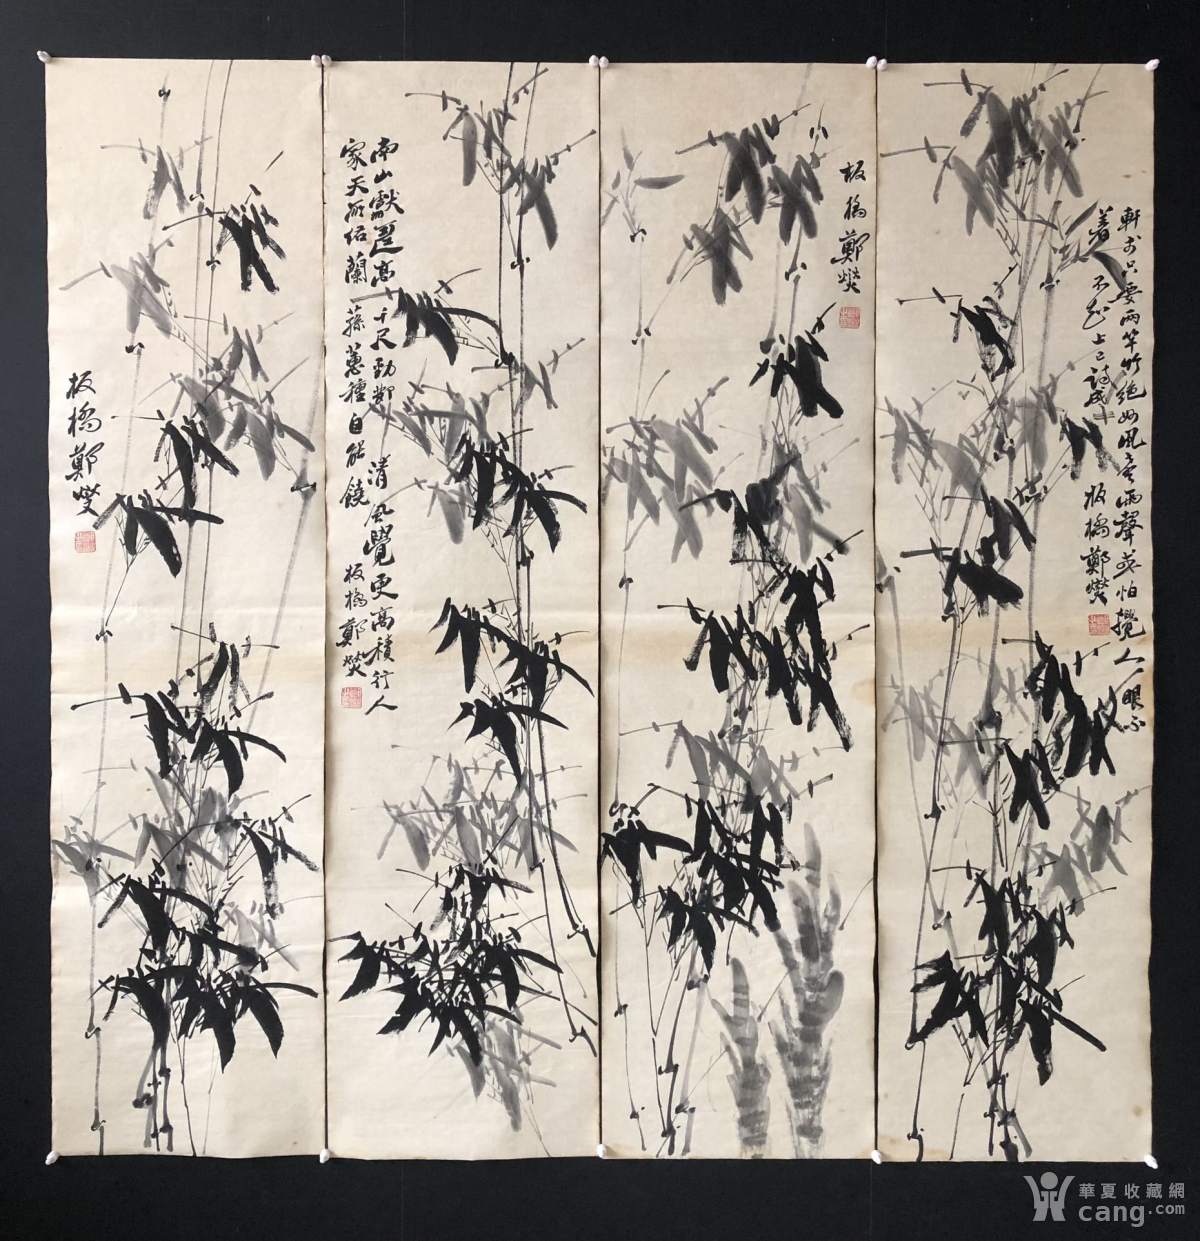 軒前只要兩竿竹絕妙風聲雨聲或怕攪人眠不
著不知上已詩成
板橋鄭燮
板橋鄭燮
南山獻壽高千尺勁節清風覺更高積行人
家天所佑蘭蓀蕙種自能饒
板橋鄭燮
板橋鄭燮
華夏收藏網
cang.com